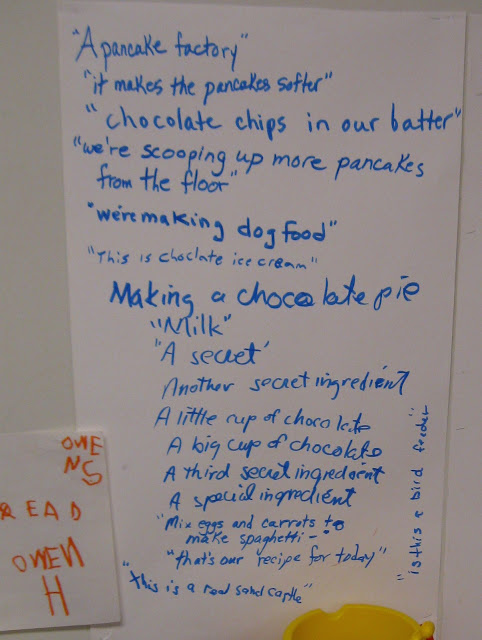 "A pancake factory"
"it makes the pancakes softer"
"chocolate chips in our batter"
"we're scooping up more pancakes
from the floor"
"we're making dog food"
"This is choclate ice cream"
Making a chocolate pie
"Milk"
"A secret"
Another secret ingredient
A little cup of chocolate
A big cup of chocolate
A third secret ingredient
A special ingredient
"Mix eggs and carrots to
make spaghetti -"
"that's our recipe for today"
"This is a real sand castle"
"is this a bird feeder"
OWE
NS
READ
OWEN
H